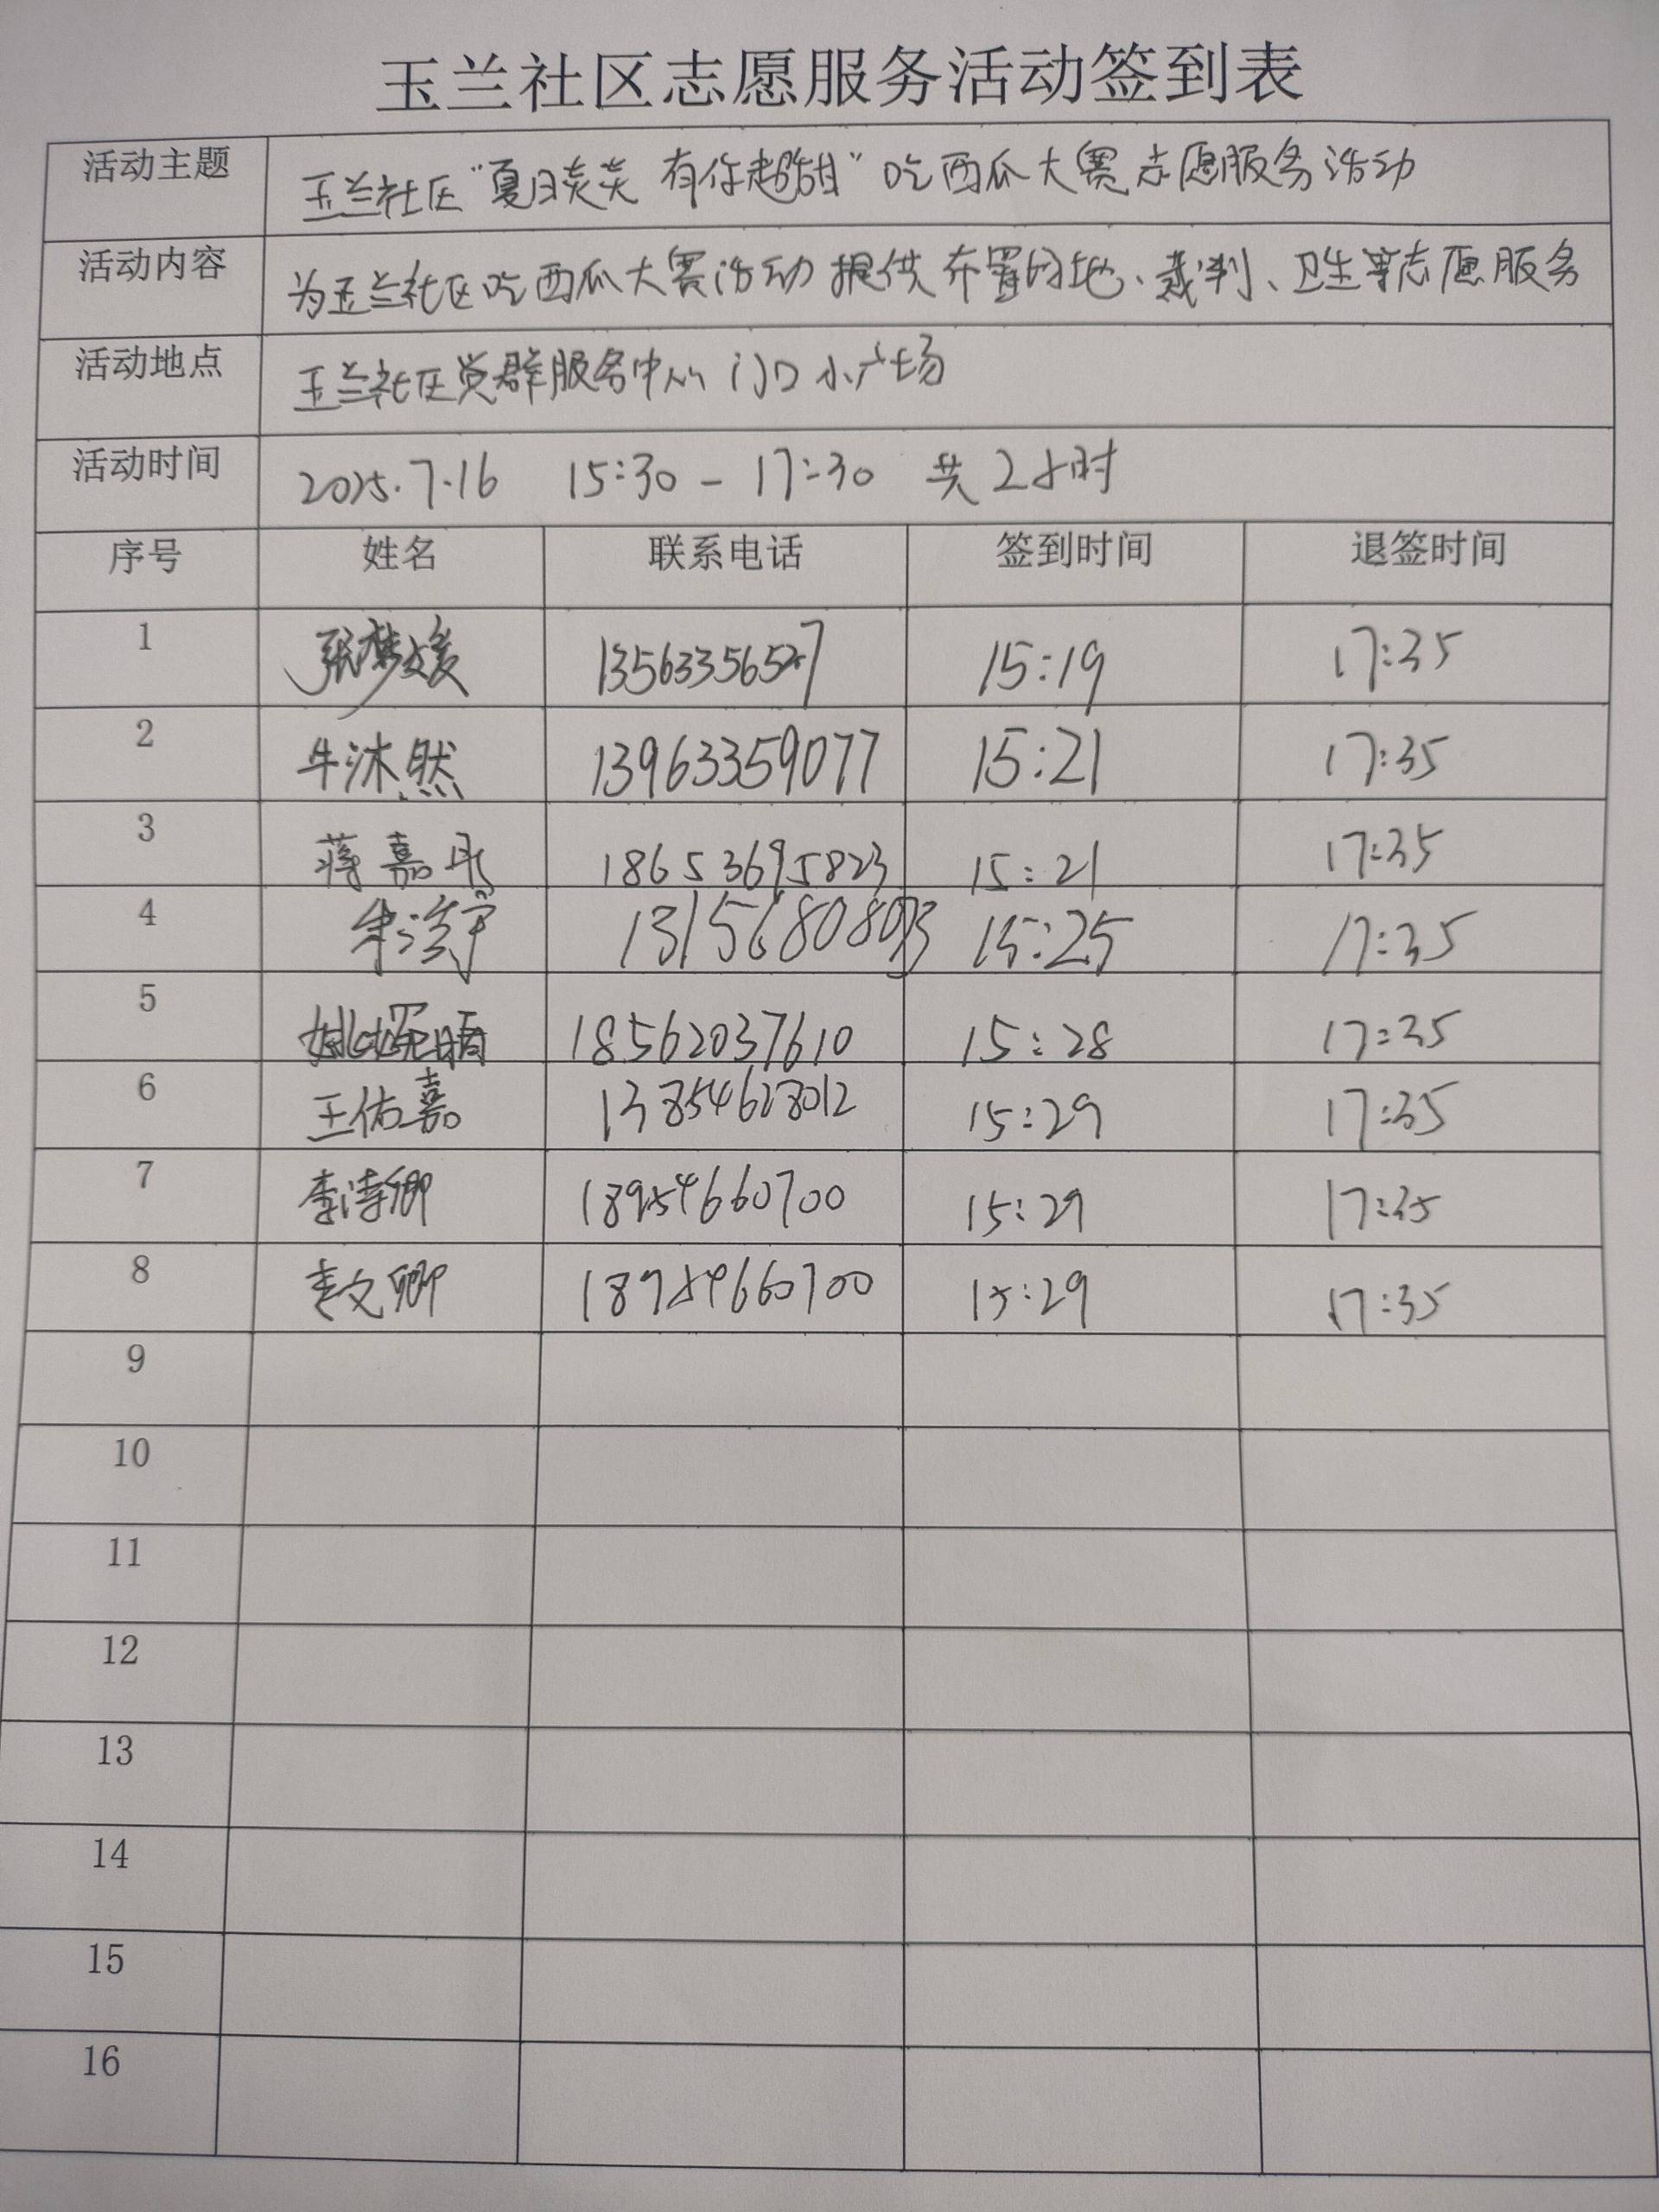 玉兰社区志愿服务活动签到表
活动主题 玉兰社区"夏日炎炎 有你超甜"吃西瓜大赛志愿服务活动
活动内容 为玉兰社区吃西瓜大赛活动提供布置场地、裁判、卫生等志愿服务
活动地点 玉兰社区党群服务中心门口小广场
活动时间 2025.7.16 15:30-17:30 共2小时
序号 姓名 联系电话 签到时间 退签时间
1 张梦媛 15:19 17:35
2 牛沐然 13963359077 15:21 17:35
3 蒋嘉 18653695823 15:21 17:35
4 15:25 17:35
5 18562037610 15:28 17:35
6 王佑嘉 13854628012 15:29 17:35
7 李涛卿 18954660700 15:29 17:35
8 李文卿 18954660700 15:29 17:35
9
10
11
12
13
14
15
16